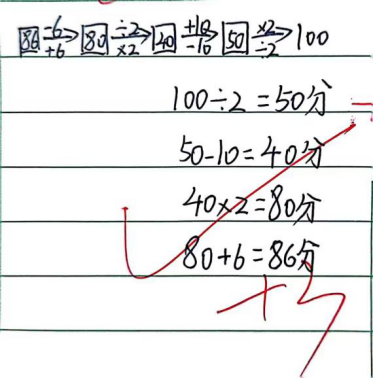 86 -6 +6 → 80 ÷2 ×2 → 40 +10 -10 → 50 ×2 ÷2 → 100
100÷2=50分
50-10=40分
40×2=80分
80+6=86分
+3